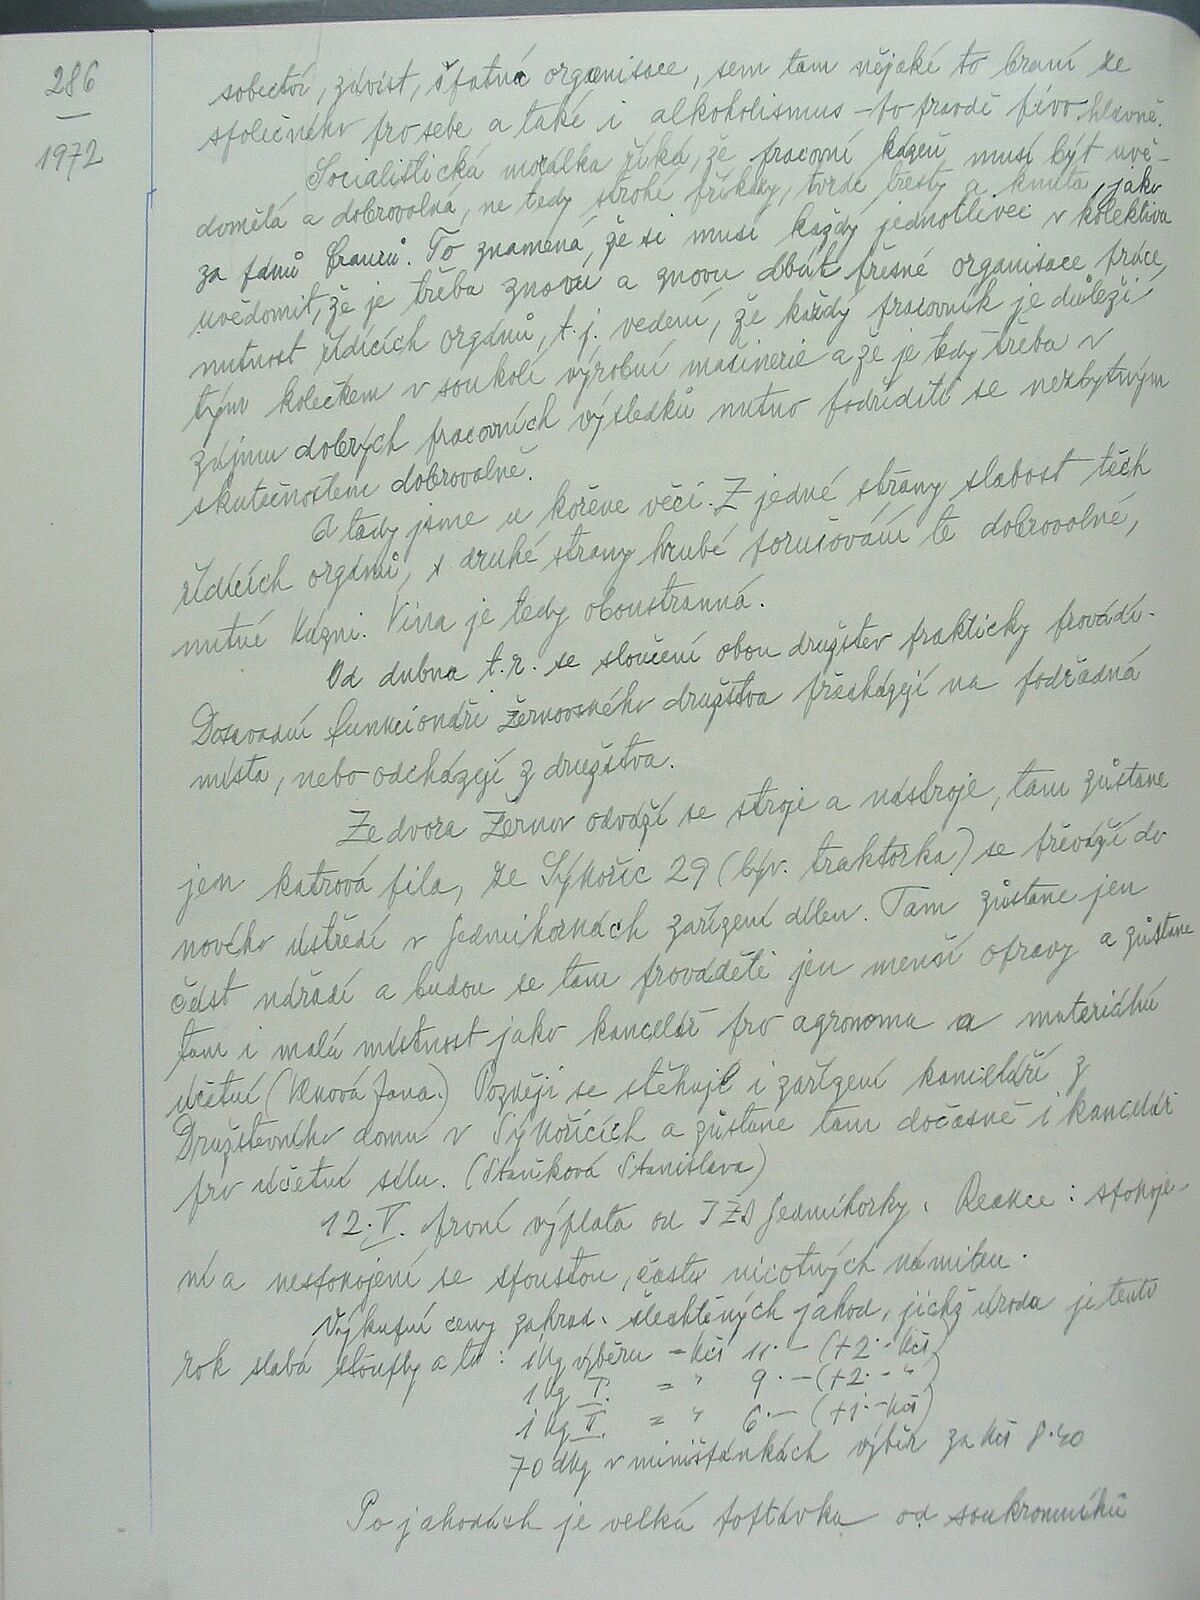 286
1972
sobectví, závist, špatná organisace, sem tam nějaké to braní ze
společného pro sebe a také i alkoholismus – to pravdě pivo hlavně.
Socialistická morálka říká, že pracovní kázeň musí být uvě-
domělá a dobrovolná, ne tedy strohé příkazy, tvrdé tresty a knuta, jako
za pánů Franců. To znamená, že si musí každý jednotlivec v kolektivu
uvědomit, že je třeba znovu a znovu dbát přesné organisace práce,
nutnost řídících orgánů, t.j. vedení, že každý pracovník je důleži-
tým kolečkem v soukolí výrobní mašinerie a že je tedy třeba v
zájmu dobrých pracovních výsledků nutno podříditi se nezbytným
skutečnostem dobrovolně.
A tady jsme u kořene věci. Z jedné strany slabost těch
řídících orgánů, s druhé strany hrubé porušování té dobrovolné,
nutné kázni. Vina je tedy oboustranná.
Od dubna t.r. se sloučení obou družstev prakticky provádí.
Dosavadní funkcionáři žernovského družstva přecházejí na podřadná
místa, nebo odcházejí z družstva.
Ze dvora Žernov odváží se stroje a nástroje, tam zůstane
jen katrová pila, ze Sýkořic 29 (býv. traktorka) se převáží do
nového ústředí v Sedmihorkách zařízení dílen. Tam zůstane jen
část nářadí a budou se tam prováděti jen menší opravy a zůstane
tam i malá místnost jako kancelář pro agronoma a materiální
účetní (Vlková Jana.) Později se stěhuje i zařízení kanceláří z
Družstevního domu v Sýkořicích a zůstane tam dočasně i kancelář
pro účetní sílu. (Staňková Stanislava)
12.V. první výplata od JZD Sedmihorky. Reakce: spokoje-
ní a nespokojení se spoustou, často nicotných námitek.
Výkupní ceny zahrad. šlechtěných jahod, jichž úroda je tento
rok slabá stouply a to: 1 kg výběru = Kčs 11.– (+2.– Kčs)
1 kg I. = " 9.– (+2.– ")
1 kg II. = " 6.– (+1.– Kčs)
70 dkg v miništánkách výběr za Kčs 8.40
Po jahodách je velká poptávka od soukromníků